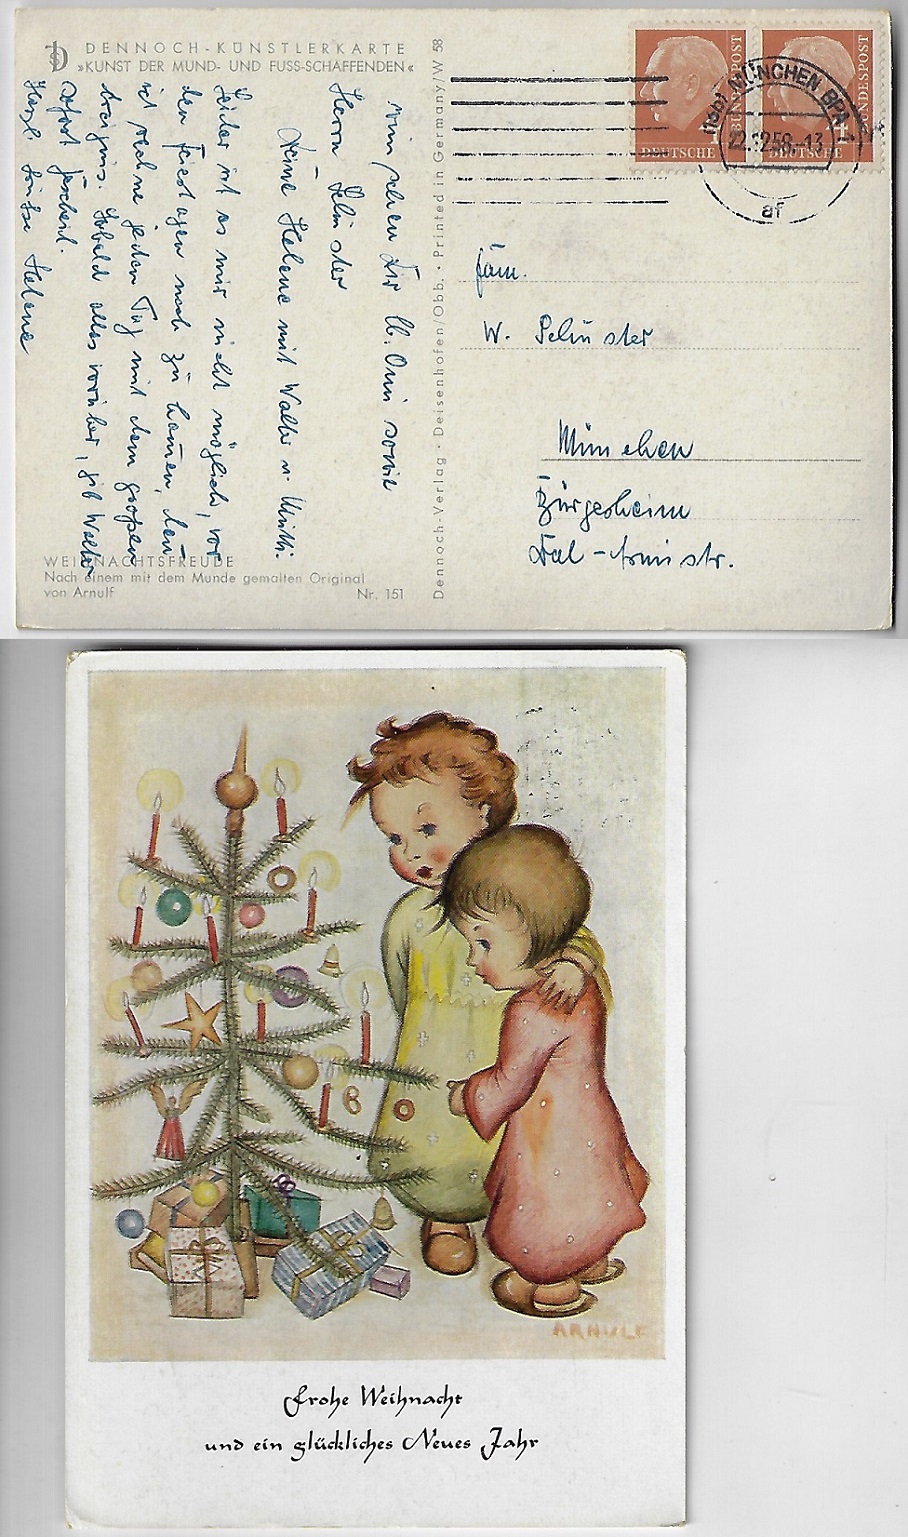 DENNOCH-KÜNSTLERKARTE
»KUNST DER MUND- UND FUSS-SCHAFFENDEN«
wünschen Dir lb. Omi sowie
Herrn Schuster
Deine Helene mit Walter u. Mutti.
Leider ist es mir nicht möglich, vor
den Feiertagen noch zu kommen, denn
ich rechne jeden Tag mit dem großen
Ereignis. Sobald alles vorüber, gibt Walter
sofort Bescheid.
Herzl. Grüße Helene
WEIHNACHTSFREUDE
Nach einem mit dem Munde gemalten Original
von Arnulf
Nr. 151
Dennoch-Verlag · Deisenhofen/Obb. · Printed in Germany/W 58
DEUTSCHE BUNDESPOST
DEUTSCHE BUNDESPOST
MÜNCHEN BPA
22.12.58-13
af
Fam.
W. Schuster
München
Fürgesheim
str.
ARNULF
Frohe Weihnacht
und ein glückliches Neues Jahr